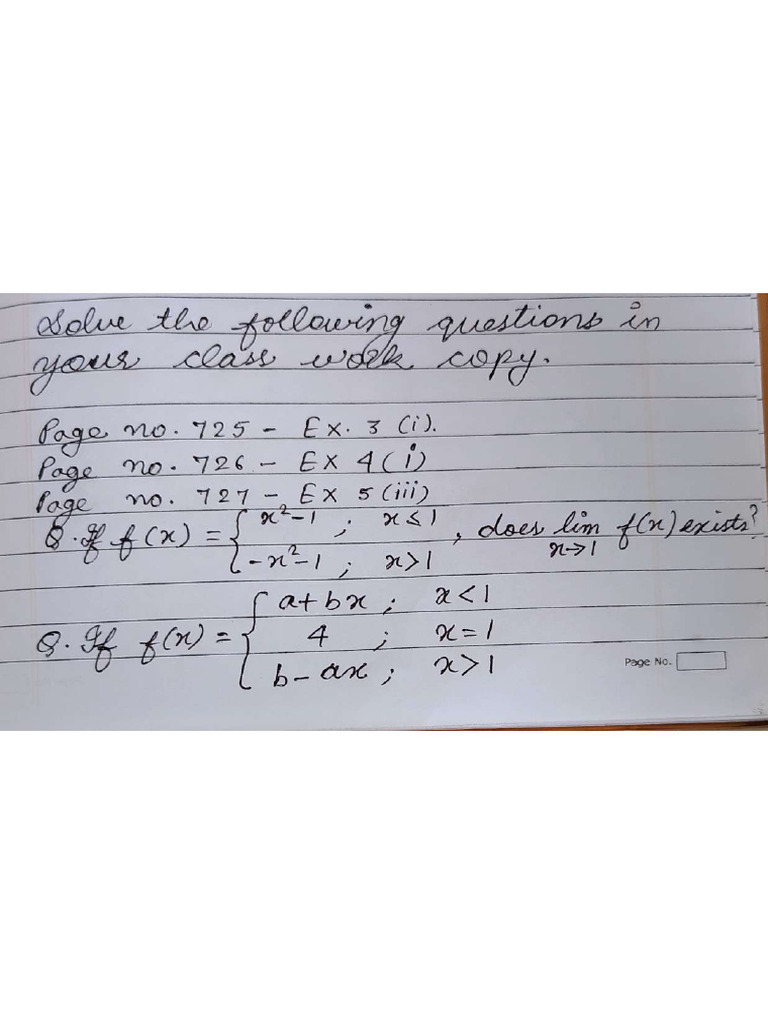 Solve the following questions in
your class work copy.
Page no. 725 - Ex. 3 (i).
Page no. 726 - Ex 4(i)
Page no. 727 - Ex 5(iii)
Q. If f(x) = { x²-1 ; x≤1
-x²-1 ; x>1 , does lim x→1 f(x) exists?
Q. If f(x) = { a+bx ; x<1
4 ; x=1
b-ax ; x>1
Page No.